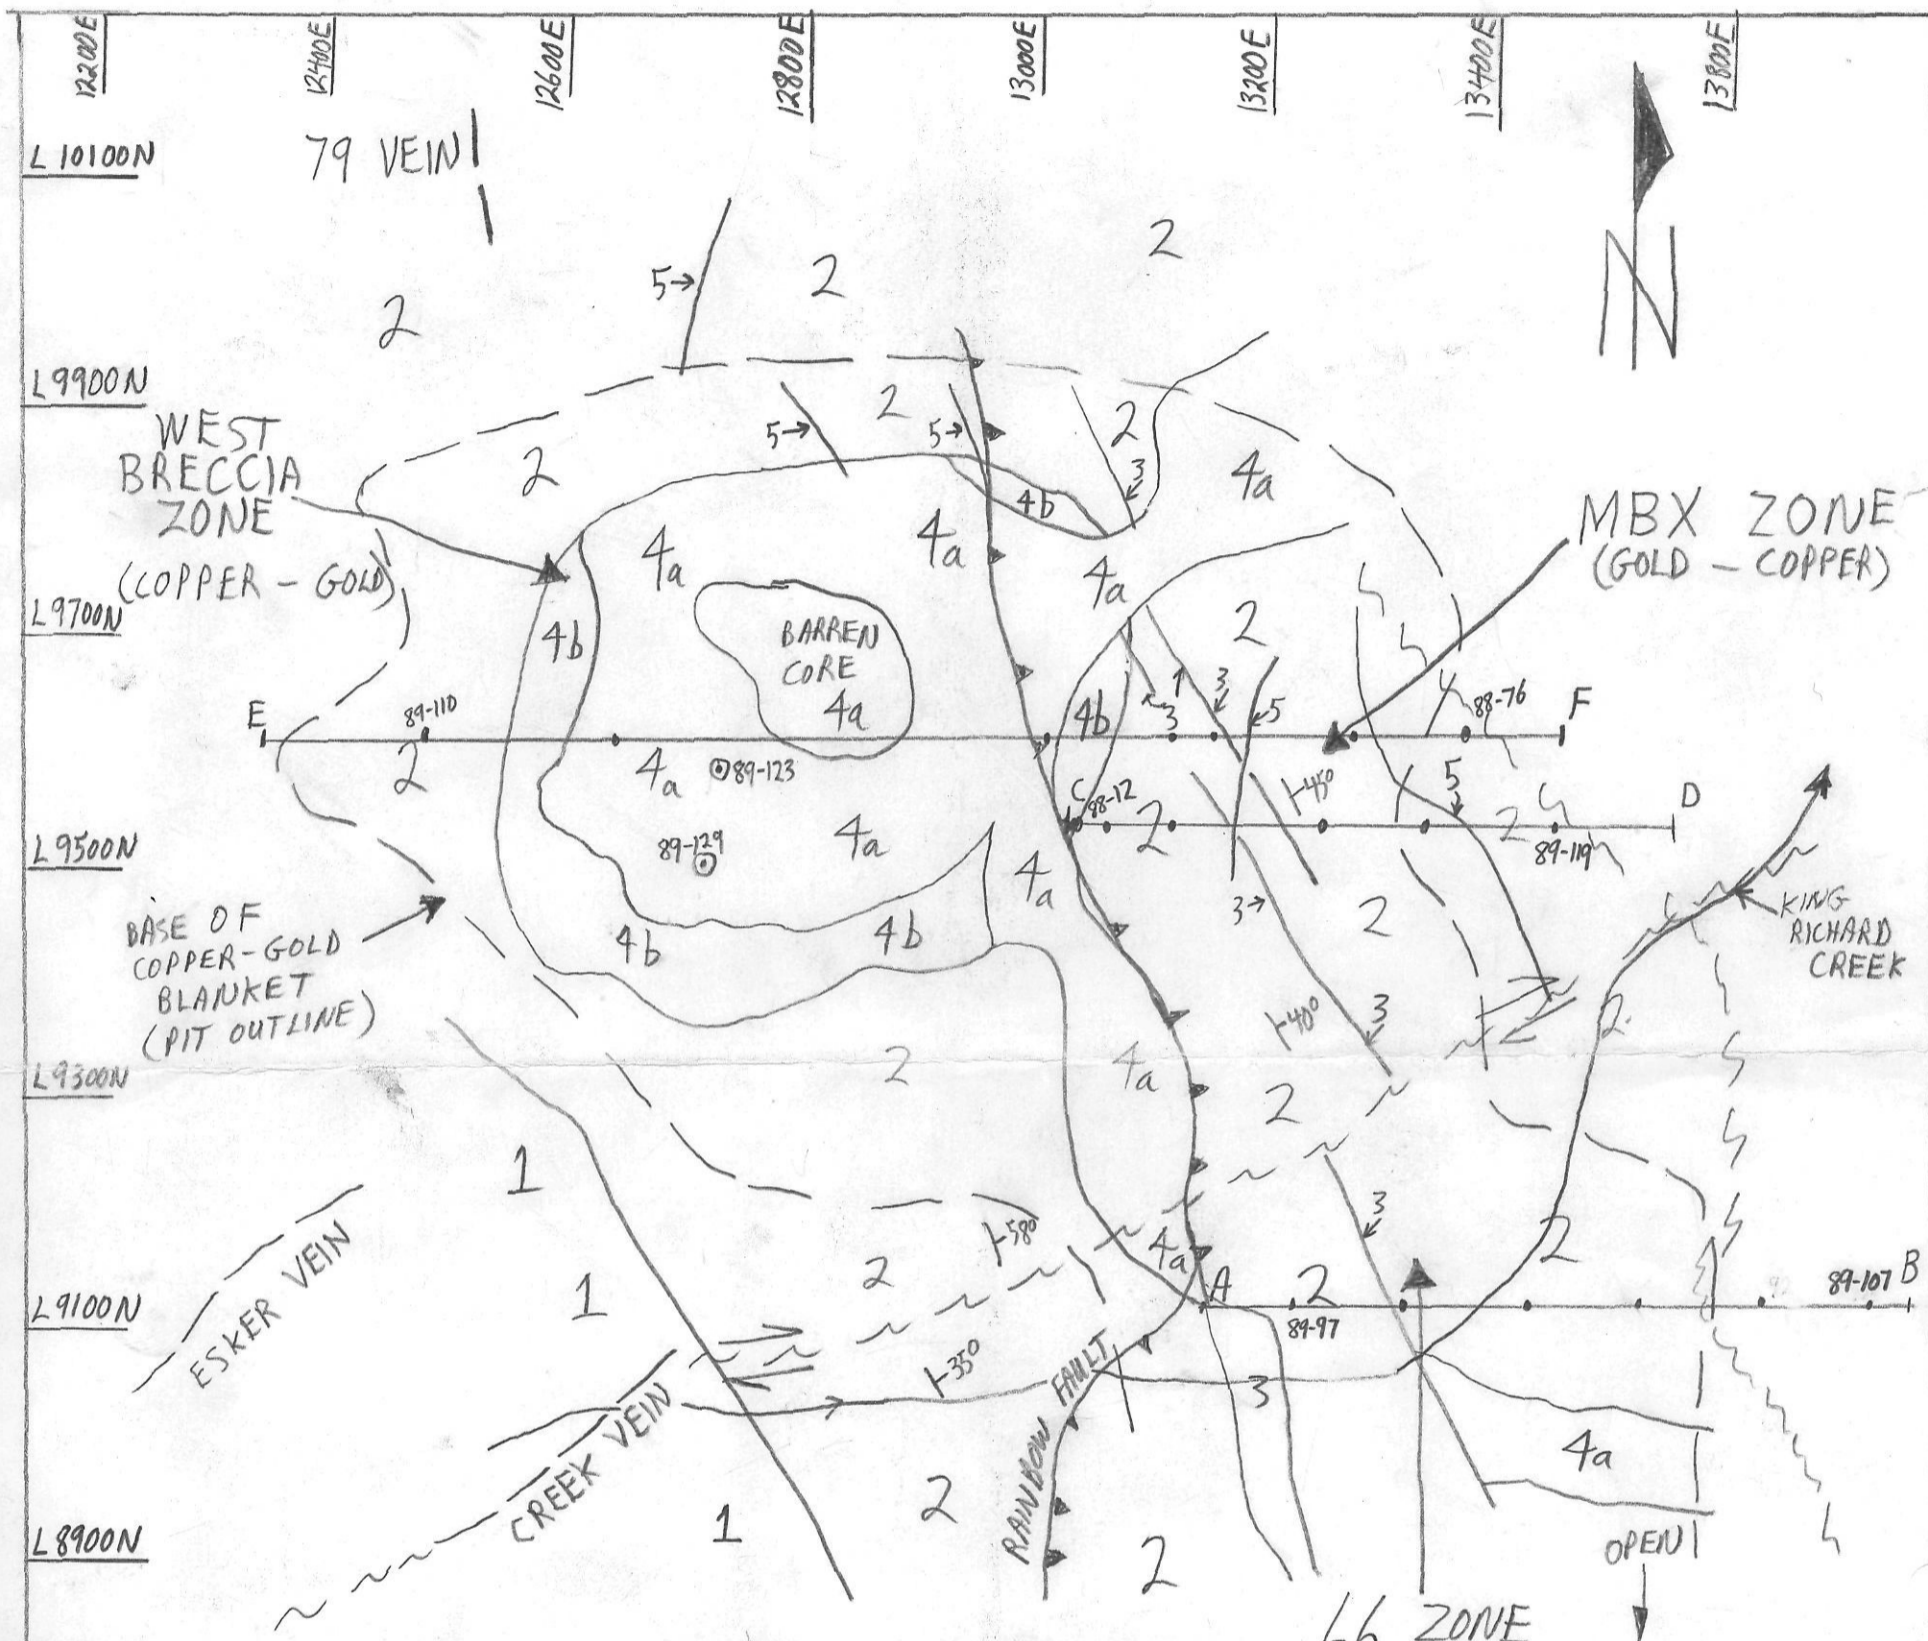 12200E
12400E
12600E
12800E
13000E
13200E
13400E
13800E
L 10100N
79 VEIN
N
2
5
2
2
L 9900N
WEST
BRECCIA
ZONE
(COPPER - GOLD)
2
5
2
5
2
3
4a
4b
4a
4a
4a
MBX ZONE
(GOLD - COPPER)
L 9700N
4b
BARREN
CORE
4a
2
E
89-110
2
4a
89-123
4b
3
3
5
88-76
F
45°
5
C
88-12
2
2
D
89-119
L 9500N
89-129
4a
4a
3
2
KING
RICHARD
CREEK
BASE OF
COPPER-GOLD
BLANKET
(PIT OUTLINE)
4b
4b
40°
3
2
2
4a
2
L 9300N
1
3
58°
4a
2
2
ESKER VEIN
1
A
2
89-97
89-107
B
L 9100N
35°
RAINBOW FAULT
3
CREEK VEIN
4a
2
1
2
OPEN
L 8900N
66 ZONE